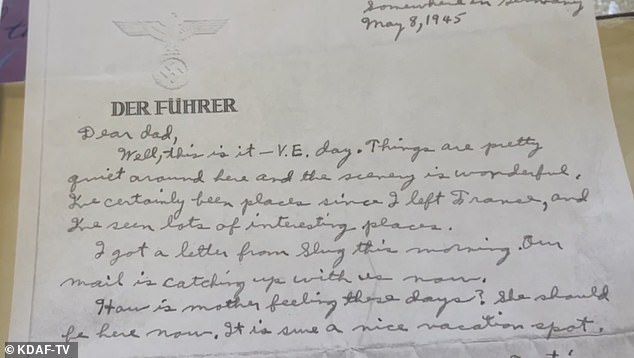 Somewhere in Germany
May 8, 1945
DER FÜHRER
Dear dad,
Well, this is it – V.E. day. Things are pretty
quiet around here and the scenery is wonderful.
I've certainly been places since I left France, and
I've seen lots of interesting places.
I got a letter from Slug this morning. Our
mail is catching up with us now.
How is mother feeling these days? She should
be here now. It is sure a nice vacation spot.
© KDAF-TV